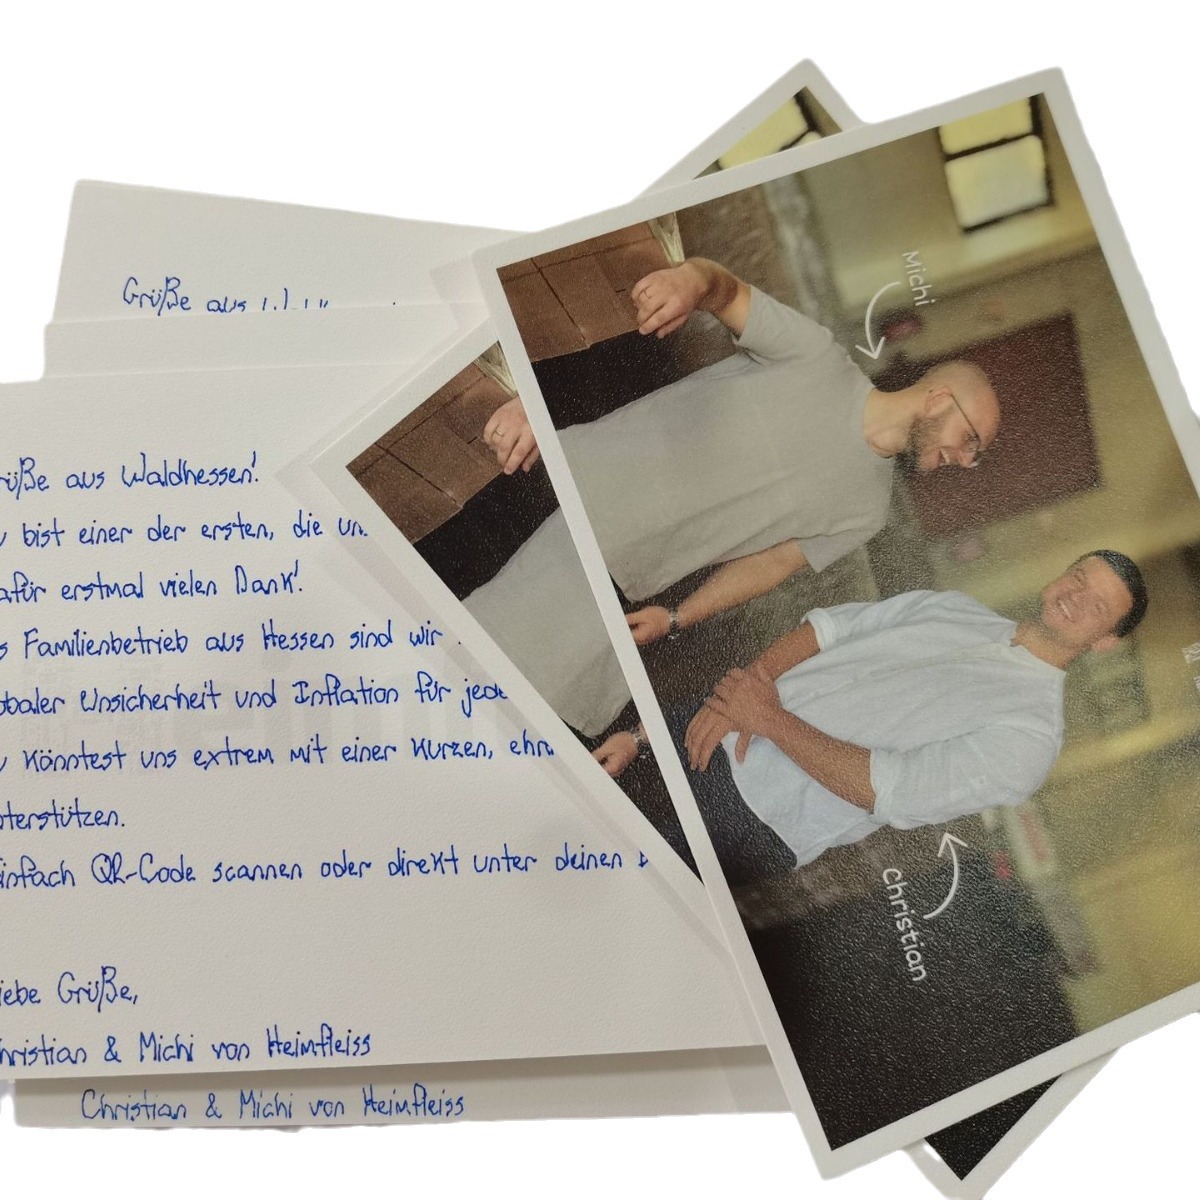 Grüße aus
rüße aus Waldhessen!
bist einer der ersten, die un
afür erstmal vielen Dank!
s Familienbetrieb aus Hessen sind wir
obaler Unsicherheit und Inflation für jede
könntest uns extrem mit einer kurzen, ehr
nterstützen.
infach QR-Code scannen oder direkt unter deinen
iebe Grüße,
hristian & Michi von Heimfleiss
Christian & Michi von Heimfleiss
Michi
Christian